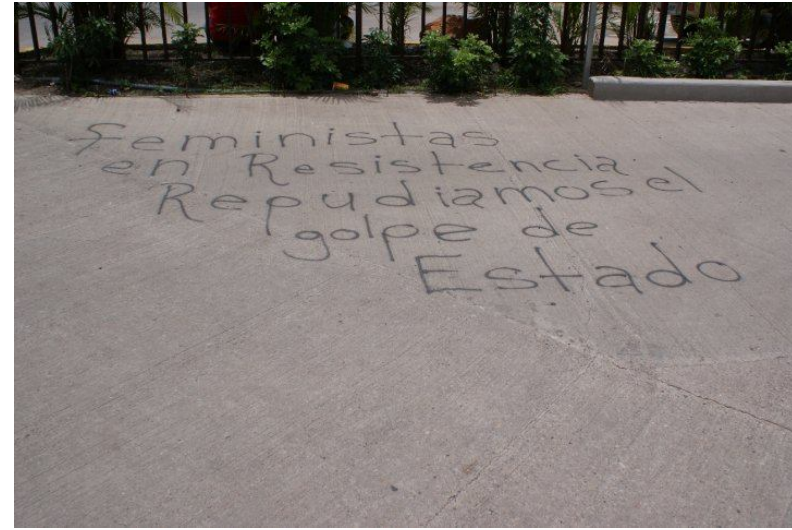 Feministas
en Resistencia
Repudiamos el
golpe de
Estado